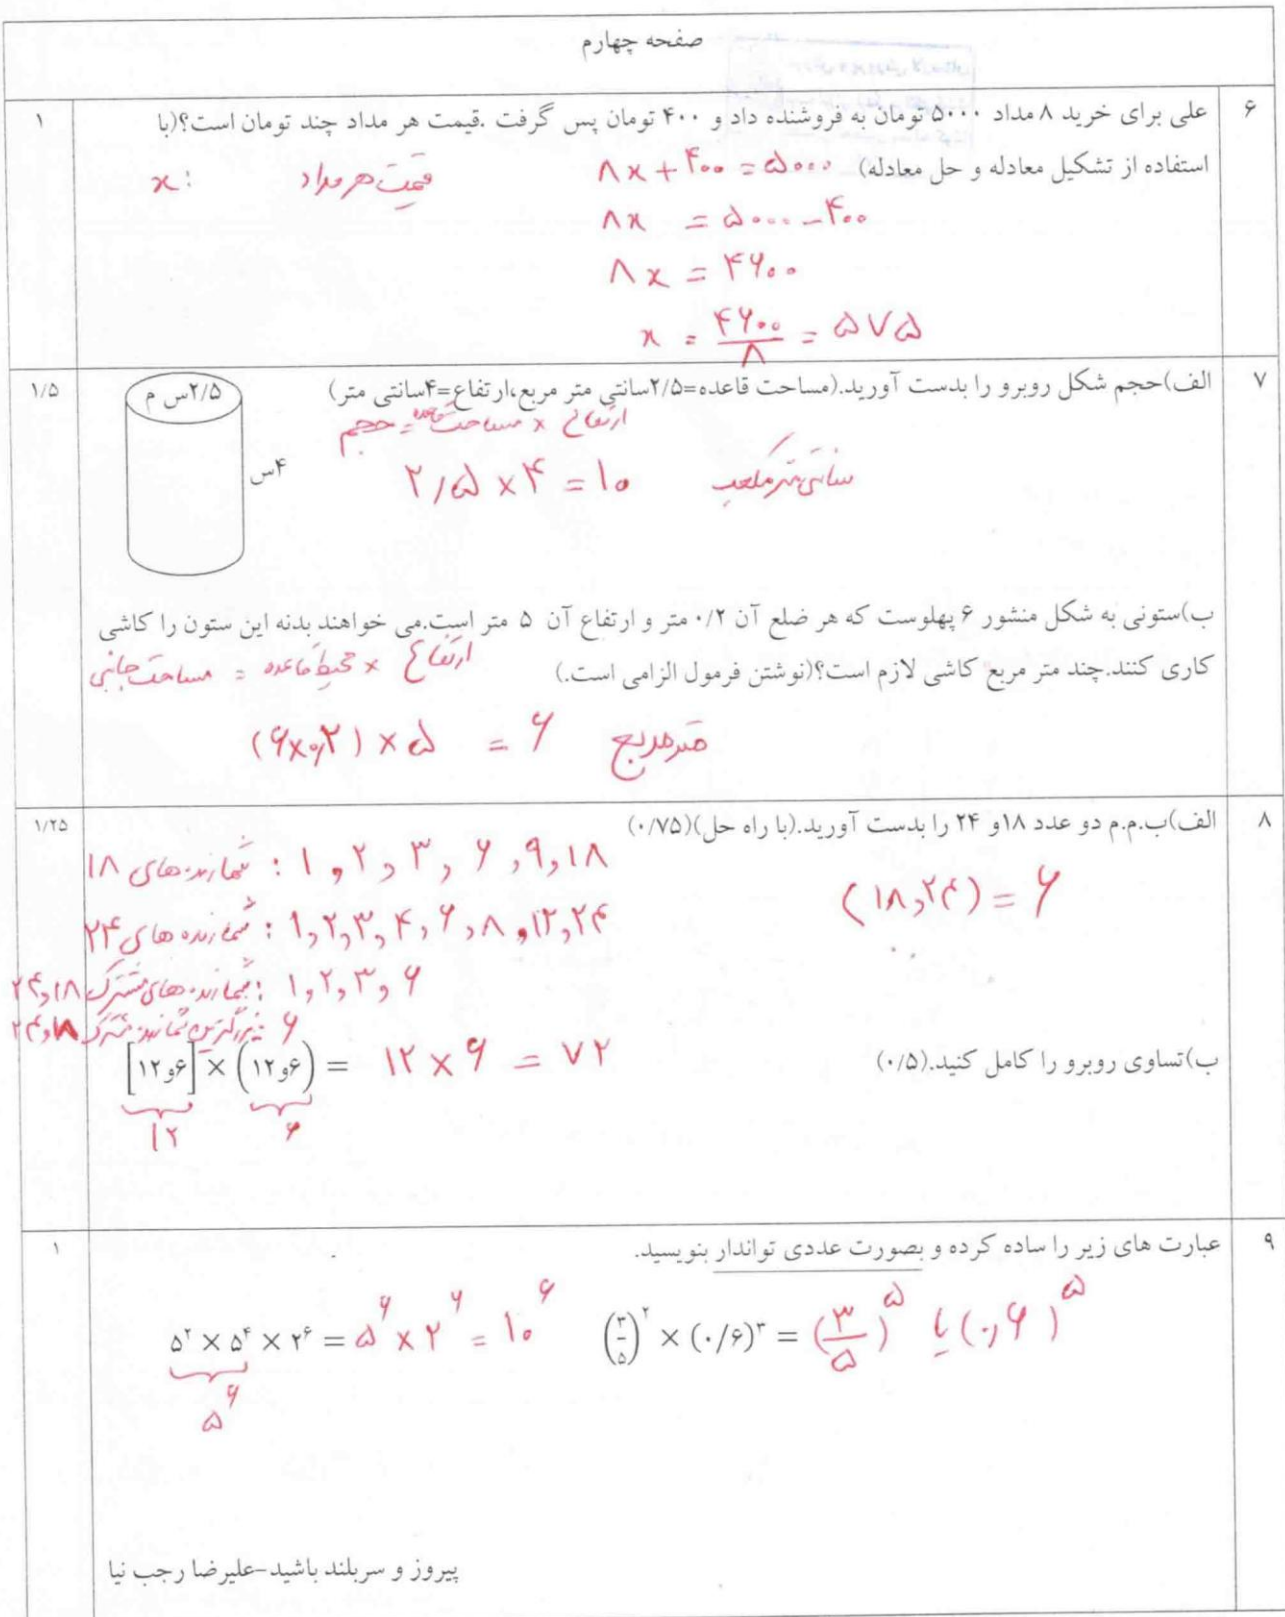 صفحه چهارم
۶
علی برای خرید ۸ مداد ۵۰۰۰ تومان به فروشنده داد و ۴۰۰ تومان پس گرفت .قیمت هر مداد چند تومان است؟(با
۱
استفاده از تشکیل معادله و حل معادله) ۸x + ۴۰۰ = ۵۰۰۰ قیمت هر مداد : x
۸x = ۵۰۰۰ - ۴۰۰
۸x = ۴۶۰۰
x = ۴۶۰۰/۸ = ۵۷۵
۷
الف)حجم شکل روبرو را بدست آورید.(مساحت قاعده=۲/۵سانتی متر مربع،ارتفاع=۴سانتی متر)
۱/۵
ارتفاع × مساحت قاعده = حجم
۲/۵ × ۴ = ۱۰ سانتی متر مکعب
۲/۵س م
۴س
ب)ستونی به شکل منشور ۶ پهلوست که هر ضلع آن ۰/۲ متر و ارتفاع آن ۵ متر است.می خواهند بدنه این ستون را کاشی
کاری کنند.چند متر مربع کاشی لازم است؟(نوشتن فرمول الزامی است.) ارتفاع × محیط قاعده = مساحت جانبی
(۶×۰/۲) × ۵ = ۶ متر مربع
۸
الف)ب.م.م دو عدد ۱۸و ۲۴ را بدست آورید.(با راه حل)(۰/۷۵)
۱/۲۵
شمارنده های ۱۸ : ۱ , ۲ , ۳ , ۶ , ۹ , ۱۸
(۱۸,۲۴) = ۶
شمارنده های ۲۴ : ۱,۲,۳,۴,۶,۸,۱۲,۲۴
شمارنده های مشترک ۱۸ و ۲۴ : ۱,۲,۳,۶
بزرگترین شمارنده مشترک ۱۸ و ۲۴ : ۶
ب)تساوی روبرو را کامل کنید.(۰/۵)
[۶و۱۲] × (۶و۱۲) = ۱۲ × ۶ = ۷۲
۱۲ ۶
۹
عبارت های زیر را ساده کرده و بصورت عددی تواندار بنویسید.
۱
۵^۲ × ۵^۴ × ۲^۶ = ۵^۶ × ۲^۶ = ۱۰^۶ (۳/۵)^۲ × (۰/۶)^۳ = (۳/۵)^۵ یا (۰/۶)^۵
۵^۶
پیروز و سربلند باشید-علیرضا رجب نیا